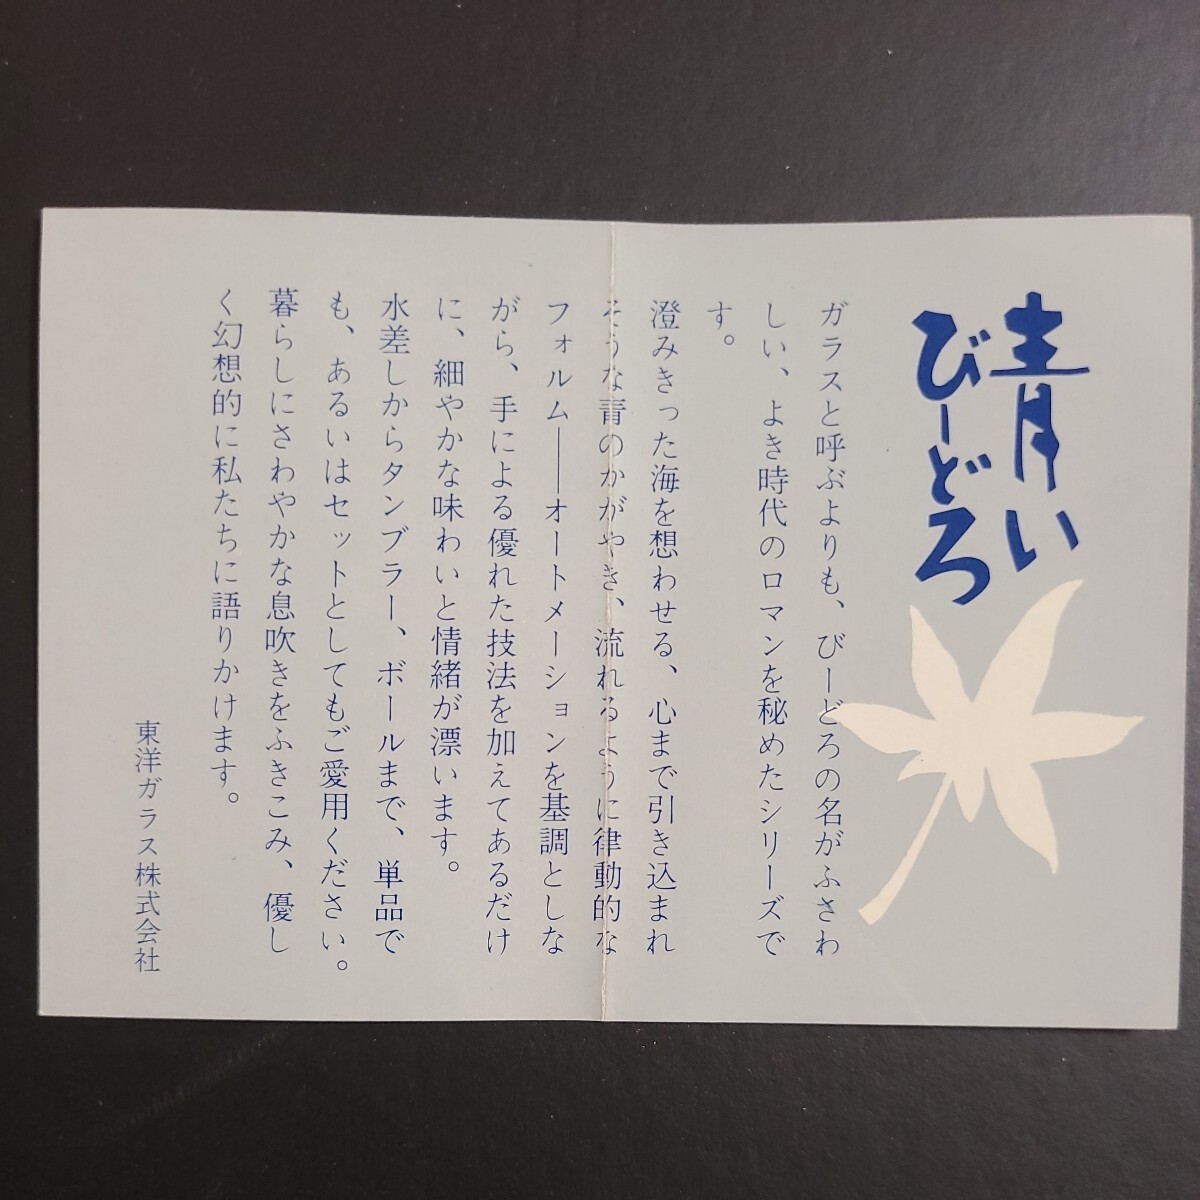 青い
びーどろ
ガラスと呼ぶよりも、びーどろの名がふさわ
しい、よき時代のロマンを秘めたシリーズで
す。
澄みきった海を想わせる、心まで引き込まれ
そうな青のかがやき、流れるように律動的な
フォルム――オートメーションを基調としな
がら、手による優れた技法を加えてあるだけ
に、細やかな味わいと情緒が漂います。
水差しからタンブラー、ボールまで、単品で
も、あるいはセットとしてもご愛用ください。
暮らしにさわやかな息吹きをふきこみ、優し
く幻想的に私たちに語りかけます。
東洋ガラス株式会社